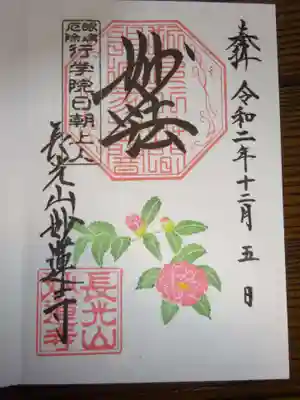 奉拝 令和二年十二月五日
妙法
眼病
厄除
行学院日朝上人
長光山妙蓮寺
長光山
妙蓮寺